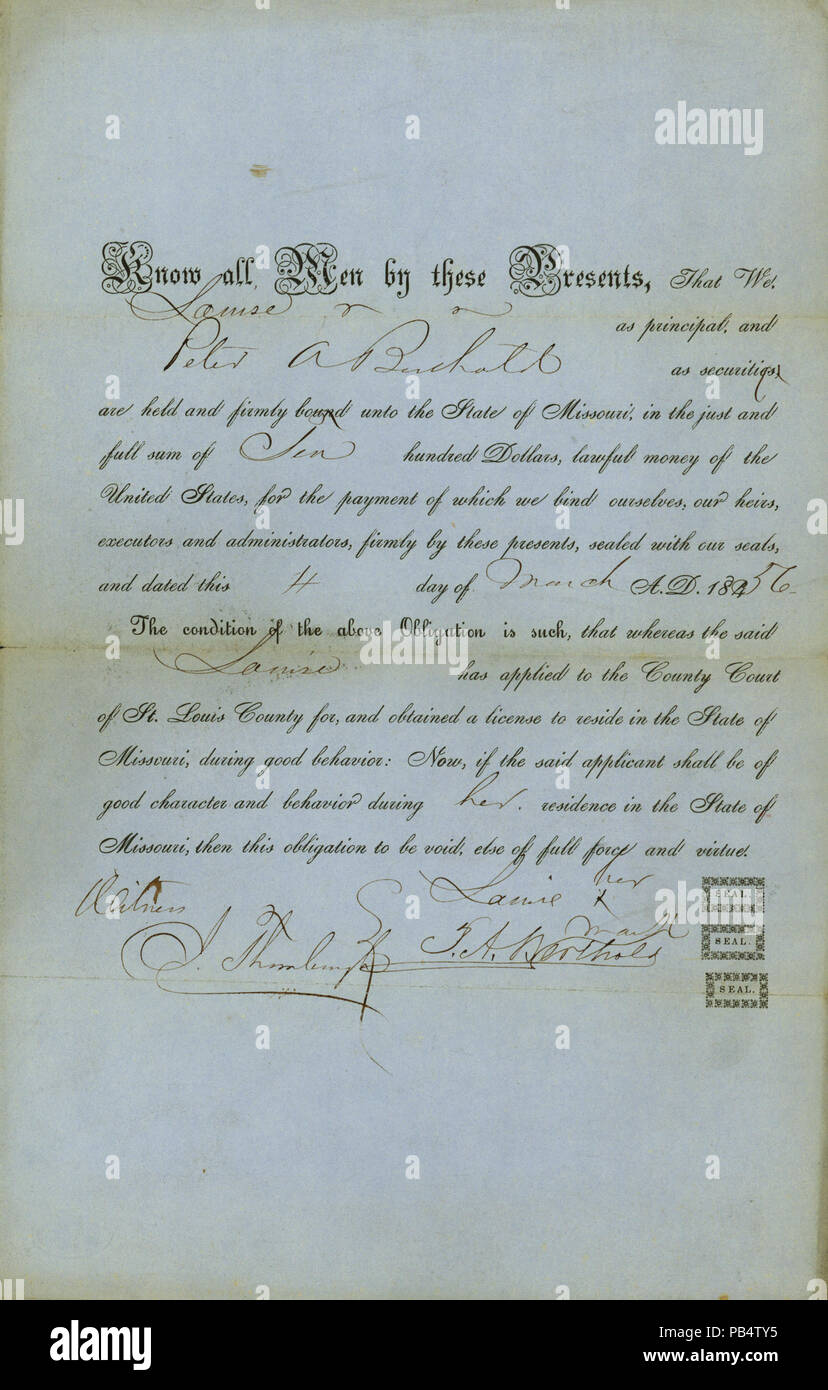 Know all Men by these Presents, That We,
Louise
as principal, and
Peter A Berthold
as securities,
are held and firmly bound unto the State of Missouri, in the just and
full sum of Ten hundred Dollars, lawful money of the
United States, for the payment of which we bind ourselves, our heirs,
executors and administrators, firmly by these presents, sealed with our seals,
and dated this 4 day of March A.D. 18456
The condition of the above Obligation is such, that whereas the said
Louise has applied to the County Court
of St. Louis County for, and obtained a license to reside in the State of
Missouri, during good behavior: Now, if the said applicant shall be of
good character and behavior during her residence in the State of
Missouri, then this obligation to be void, else of full force and virtue.
Witness Louise x her SEAL.
mark
J. P. A. Berthold SEAL.
SEAL.
alamy
a
alamy
alamy
Image ID: PB4TY5
www.alamy.com